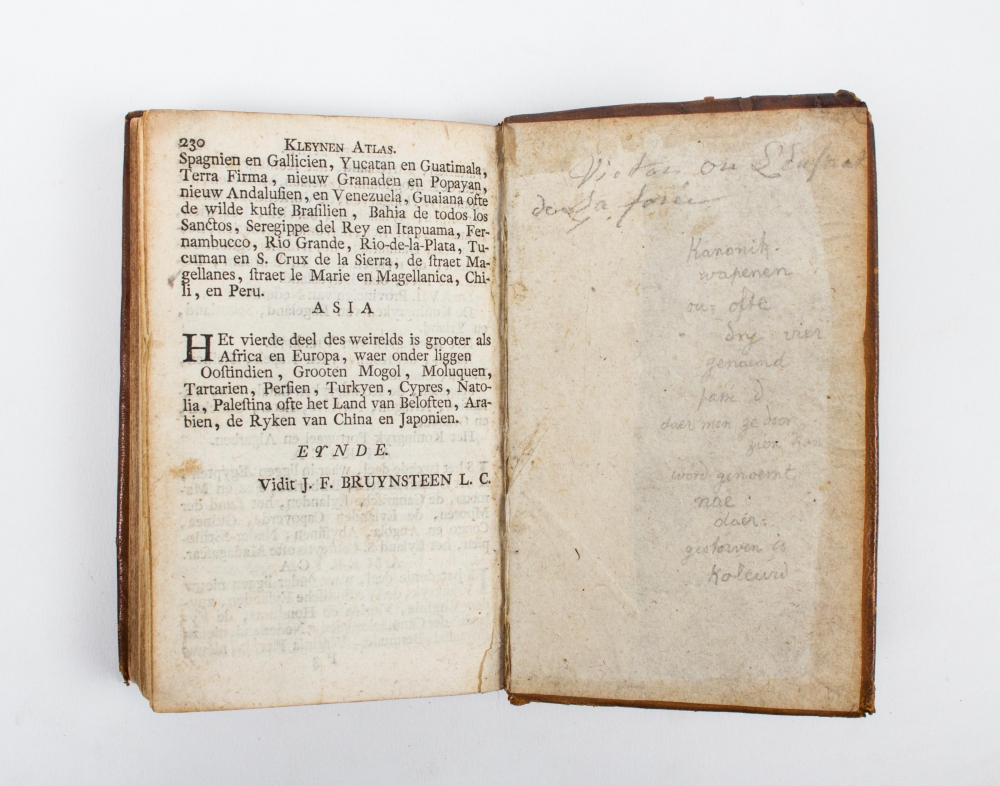 230 KLEYNEN ATLAS.
Spagnien en Gallicien, Yucatan en Guatimala,
Terra Firma, nieuw Granaden en Popayan,
nieuw Andaluſien, en Venezuela, Guaiana ofte
de wilde kuſte Braſilien, Bahia de todos los
Sanctos, Seregippe del Rey en Itapuama, Fer-
nambucco, Rio Grande, Rio-de-la-Plata, Tu-
cuman en S. Crux de la Sierra, de ſtraet Ma-
gellanes, ſtraet le Marie en Magellanica, Chi-
li, en Peru.
ASIA
HEt vierde deel des weirelds is grooter als
Africa en Europa, waer onder liggen
Ooſtindien, Grooten Mogol, Moluquen,
Tartarien, Perſien, Turkyen, Cypres, Nato-
lia, Paleſtina ofte het Land van Beloften, Ara-
bien, de Ryken van China en Japonien.
EYNDE.
Vidit J. F. BRUYNSTEEN L. C.
ou
Kanonik.
wapenen
ou= ofte
dry vier
genaemd
daer men ze door
word genoemt
nae
daer=
gestorven is